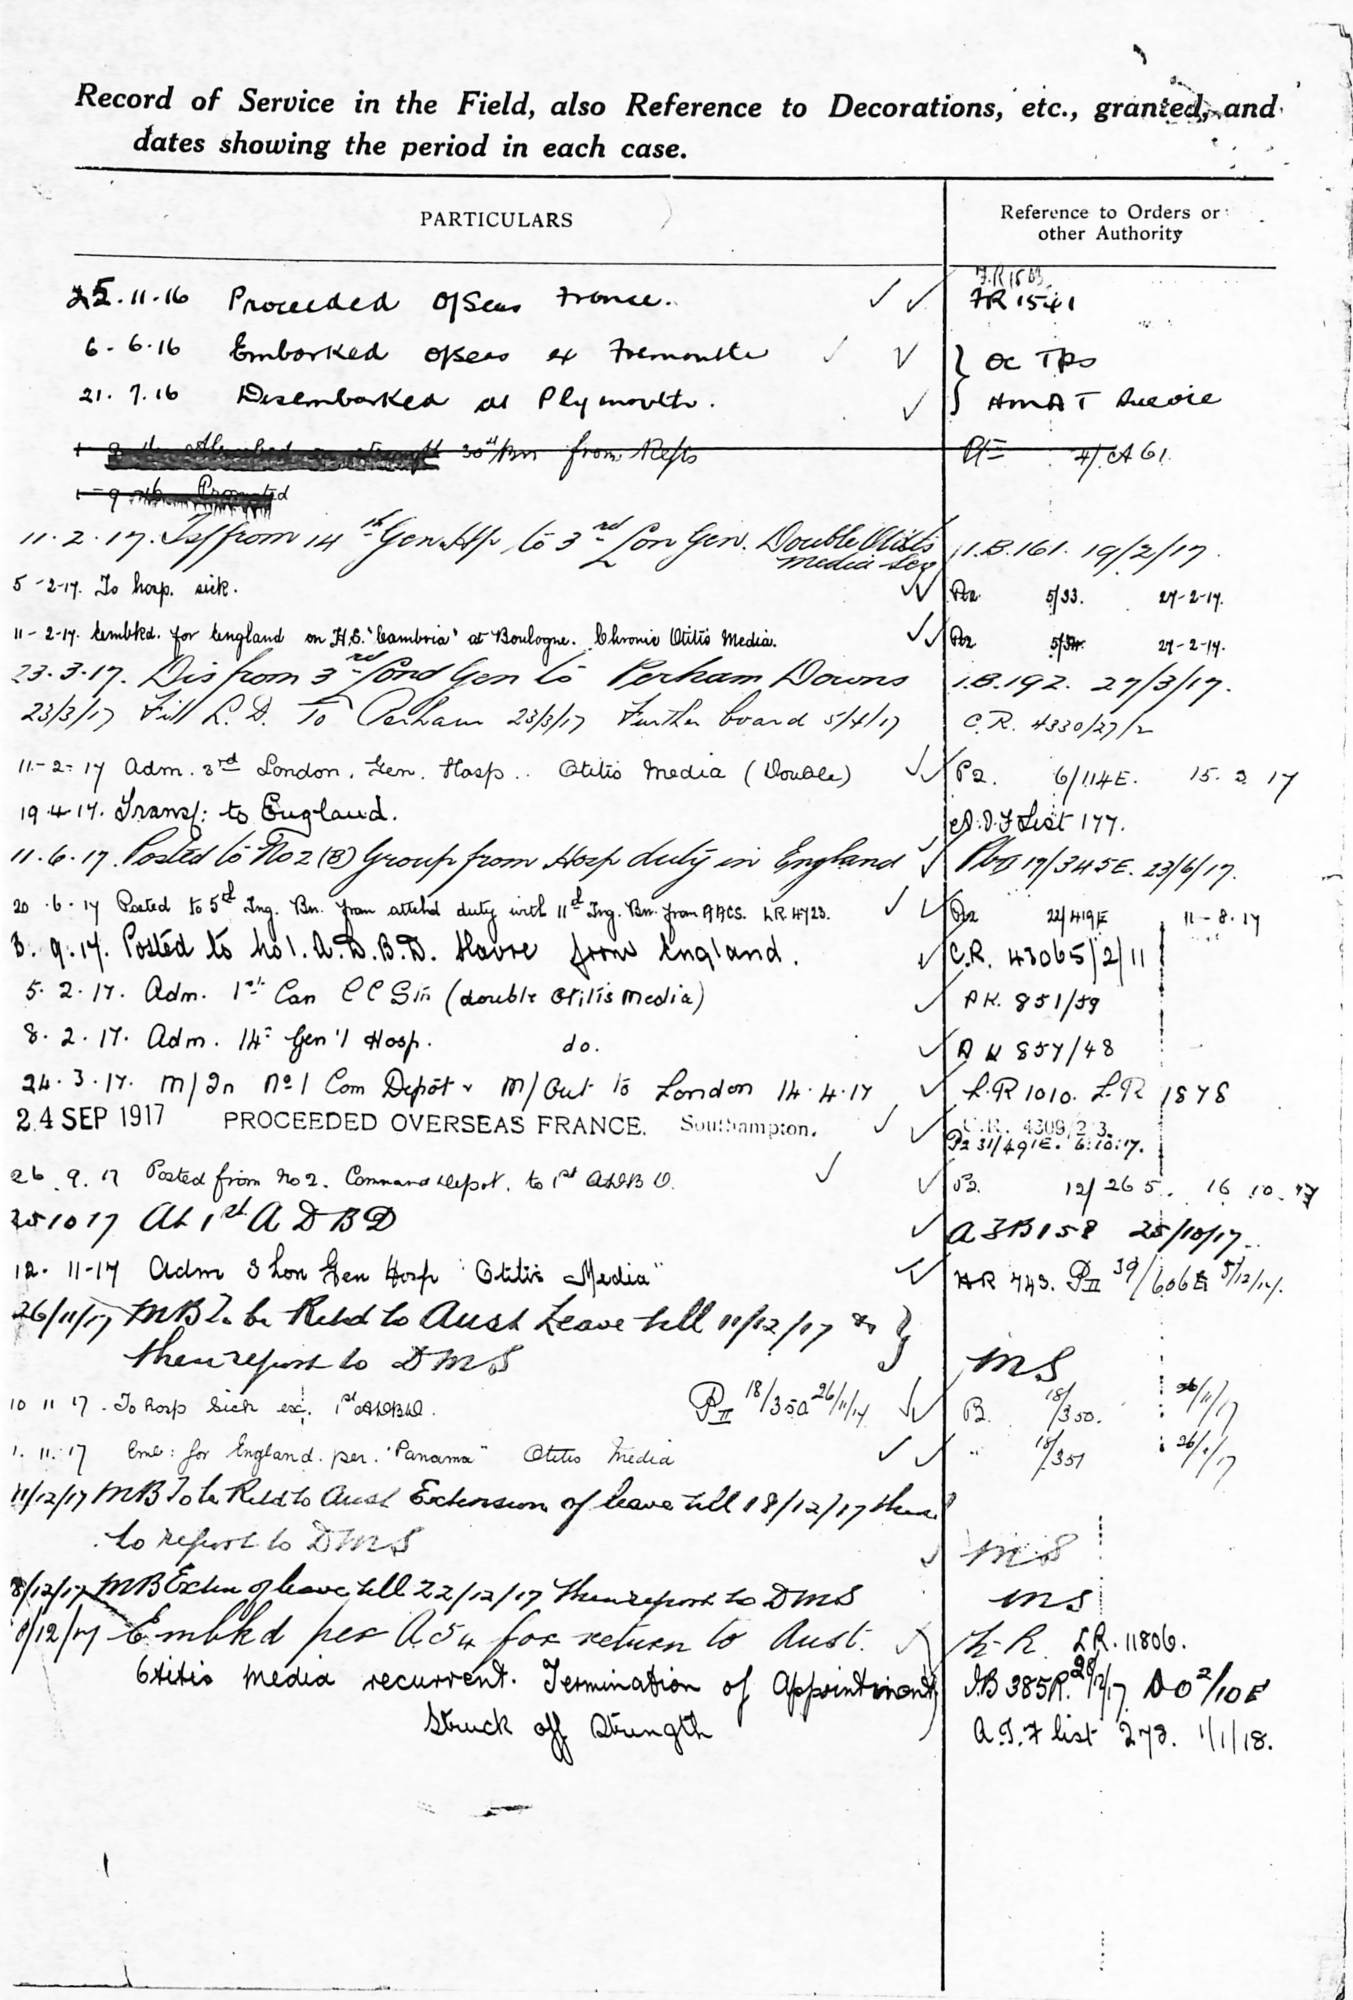 Record of Service in the Field, also Reference to Decorations, etc., granted, and
dates showing the period in each case.
PARTICULARS
Reference to Orders or
other Authority
F.R 1503
25.11.16 Proceeded O/Seas France. FR 1541
6-6.16 Embarked o/seas ex Fremantle } OC TPS
21.7.16 Disembarked at Plymouth. HMAT
30th Bn from Refts 4/ A 61
1-9 Promoted
11.2.17. Tsf from 14th Gen. Hp to 3rd Lon Gen. Double Otitis I.B.161. 19/2/17.
Media
5-2-17. To hosp. sick. P2 5/33. 27-2-17.
11-2-17. Embkd. for England on H.S. "Cambria" at Boulogne. Chronic Otitis Media. P2 5/34 27-2-17.
23.3.17. Dis from 3rd Lond Gen to Perham Downs I.B.192. 27/3/17.
23/3/17 Fit L.D. To Perham 23/3/17 Further board 5/4/17 C.R. 4330/27/2
11-2-17 Adm. 3rd London. Gen. Hosp.. Otitis Media (Double) P2. 6/114E. 15. 3 17
19.4.17. Transf: to England. List 177.
11.6.17. Posted to No 2 (B) Group from Hosp duty in England 17/345E. 23/6/17.
20.6.17 Posted to 5th Tng. Bn. from attchd duty with 11th Tng. Bn. from LR. 4723. P2 22/419E 11-8.17
3.9.17. Posted to No 1. A.D.B.D. Havre from England. C.R. 43065/2/11
5.2.17. Adm. 1st Can C C Stn (double Otitis Media) AK. 851/59
8.2.17. Adm. 14th Gen'l Hosp. do. A K 857/48
24.3.17. M/In No 1 Com Depôt & M/Out to London 14.4.17 L.R 1010. L.R 1878
24 SEP 1917 PROCEEDED OVERSEAS FRANCE. Southampton. C.R. 4309/2/3.
P2 31/491E. 6.10.17.
26.9.17 Posted from No 2. Command Depot. to 1st ADBD. P2. 12/265. 16 10.17
25 10 17 At 1st A D B D A F B 158 25/10/17
12.11-17 Adm 3 Lon Gen Hosp "Otitis Media" HR 743. PII 39/606E 5/12/17.
26/11/17 MB To be Retd to Aust Leave till 11/12/17 &
then report to DMS MS
10 11 17. To hosp Sick ex. 1st ADBD. PII 18/350 26/11/17 P2. 18/350. 26/11/17
1.11.17 Emb: for England. per. "Panama" Otitis Media " 18/351 26/11/17
11/12/17 MB To be Retd to Aust Extension of leave till 18/12/17 then
to report to DMS MS
8/12/17 MB Exten of leave till 22/12/17 then report to DMS MS
/12/17 Embkd per A54 for return to Aust. LR. 11806.
Otitis Media recurrent. Termination of Appointment I.B 385R. 28/12/17 DO 2/10E
Struck off Strength A.I.F list 273. 1/1/18.